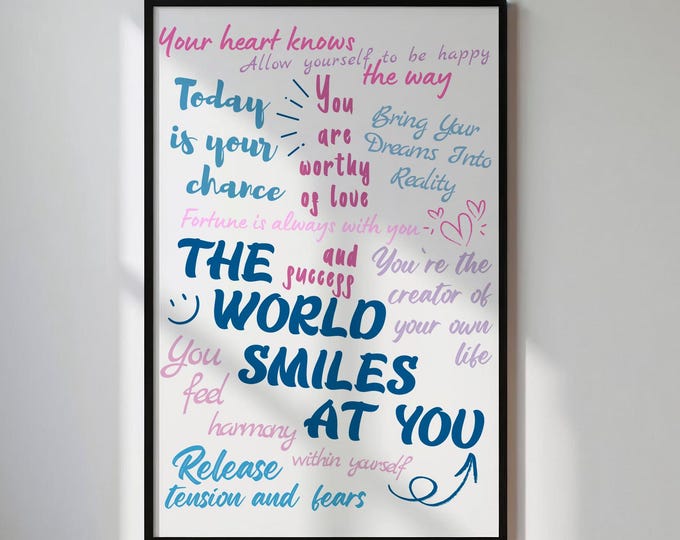 Your heart knows
Allow yourself to be happy
the way
Today
is your
chance
You
are
worthy
of love
Bring Your
Dreams Into
Reality
Fortune is always with you
and
success
THE
WORLD
SMILES
AT YOU
You`re the
creator of
your own
life
You
feel
harmony
within yourself
Release
tension and fears